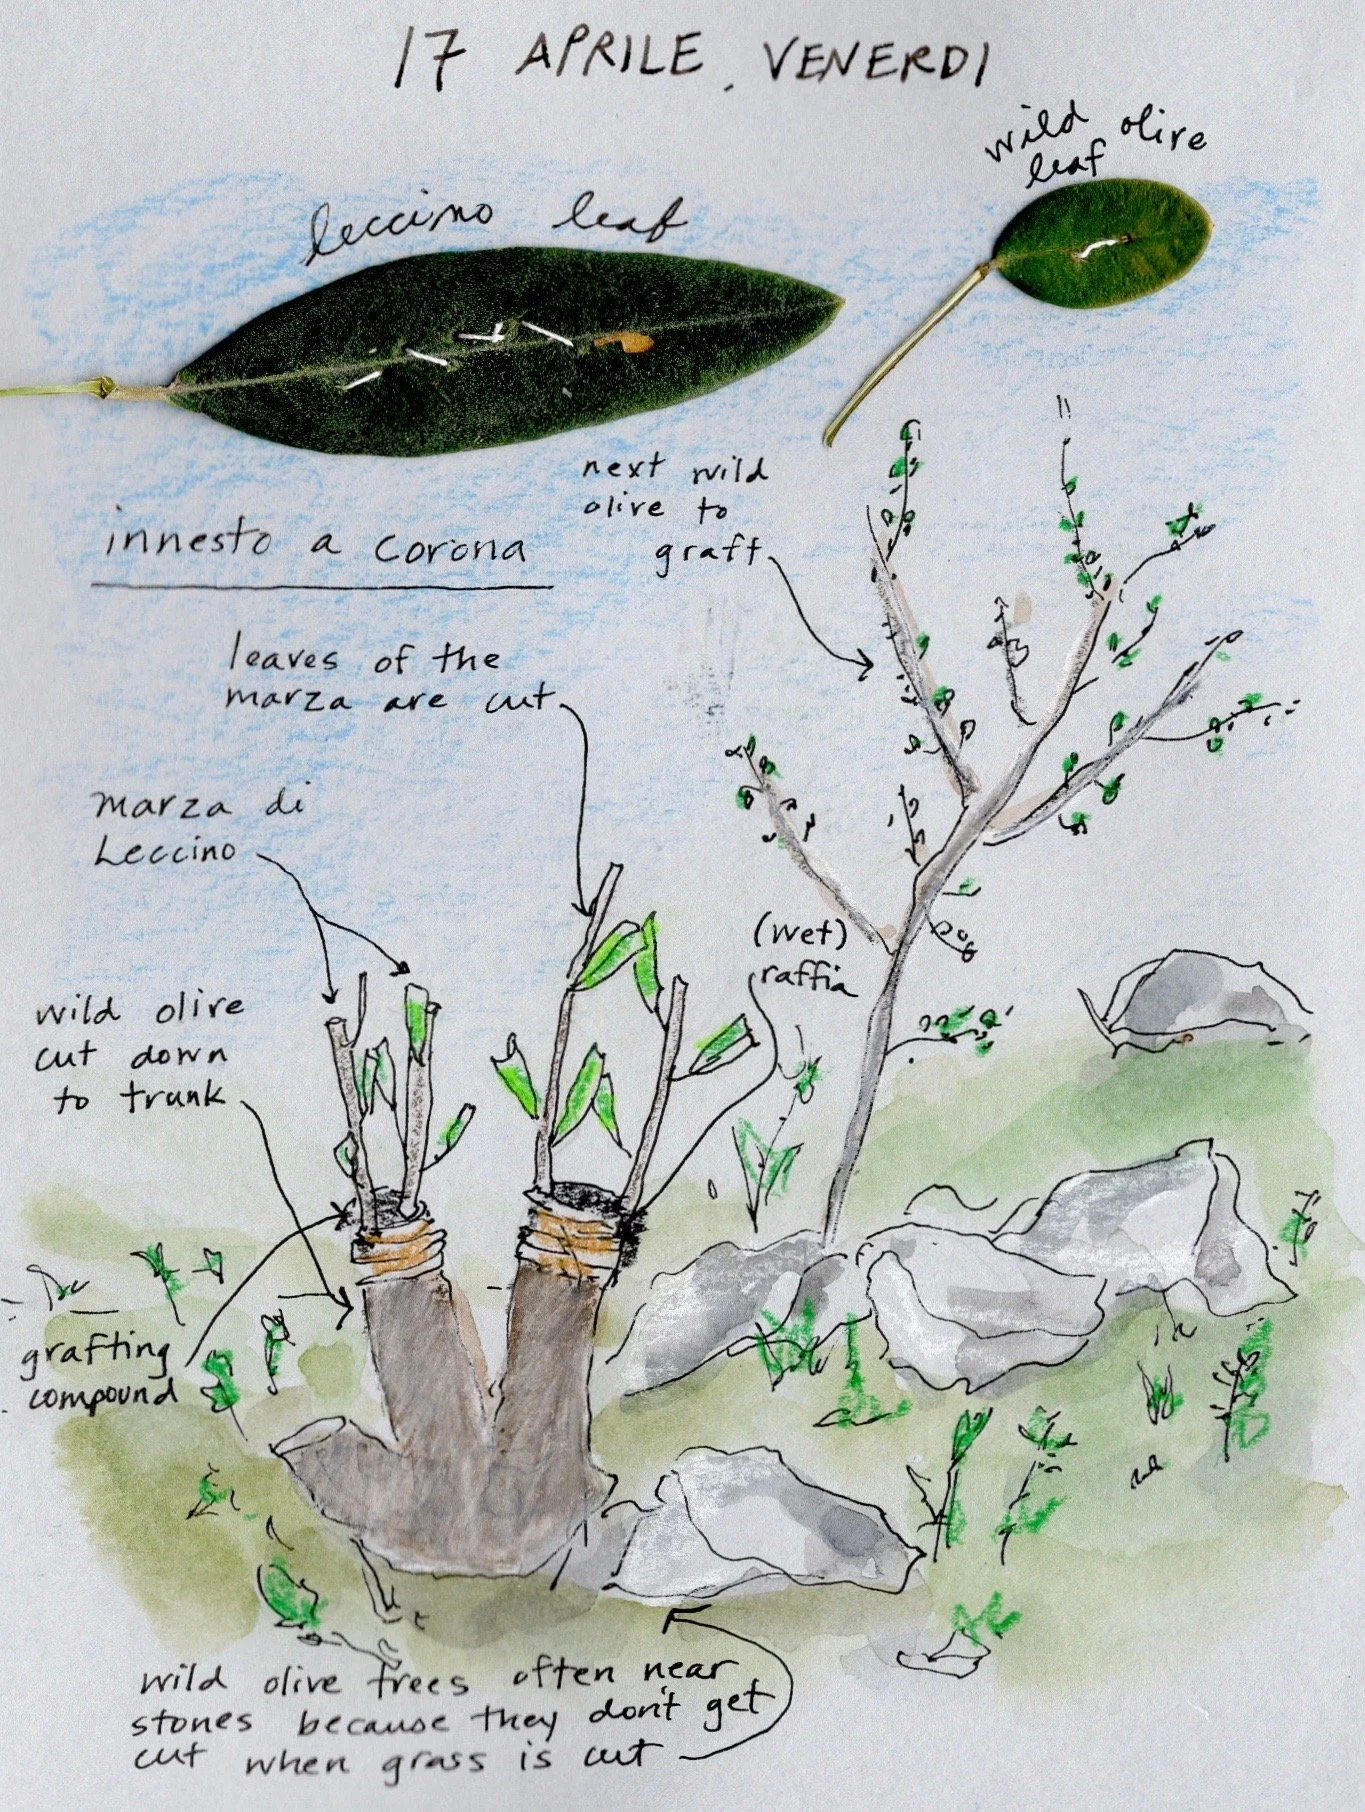 17 APRILE, VENERDI
wild olive
leaf
leccino leaf
next wild
olive to
graft
innesto a corona
leaves of the
marza are cut
marza di
Leccino
(wet)
raffia
wild olive
cut down
to trunk
grafting
compound
wild olive trees often near
stones because they don't get
cut when grass is cut